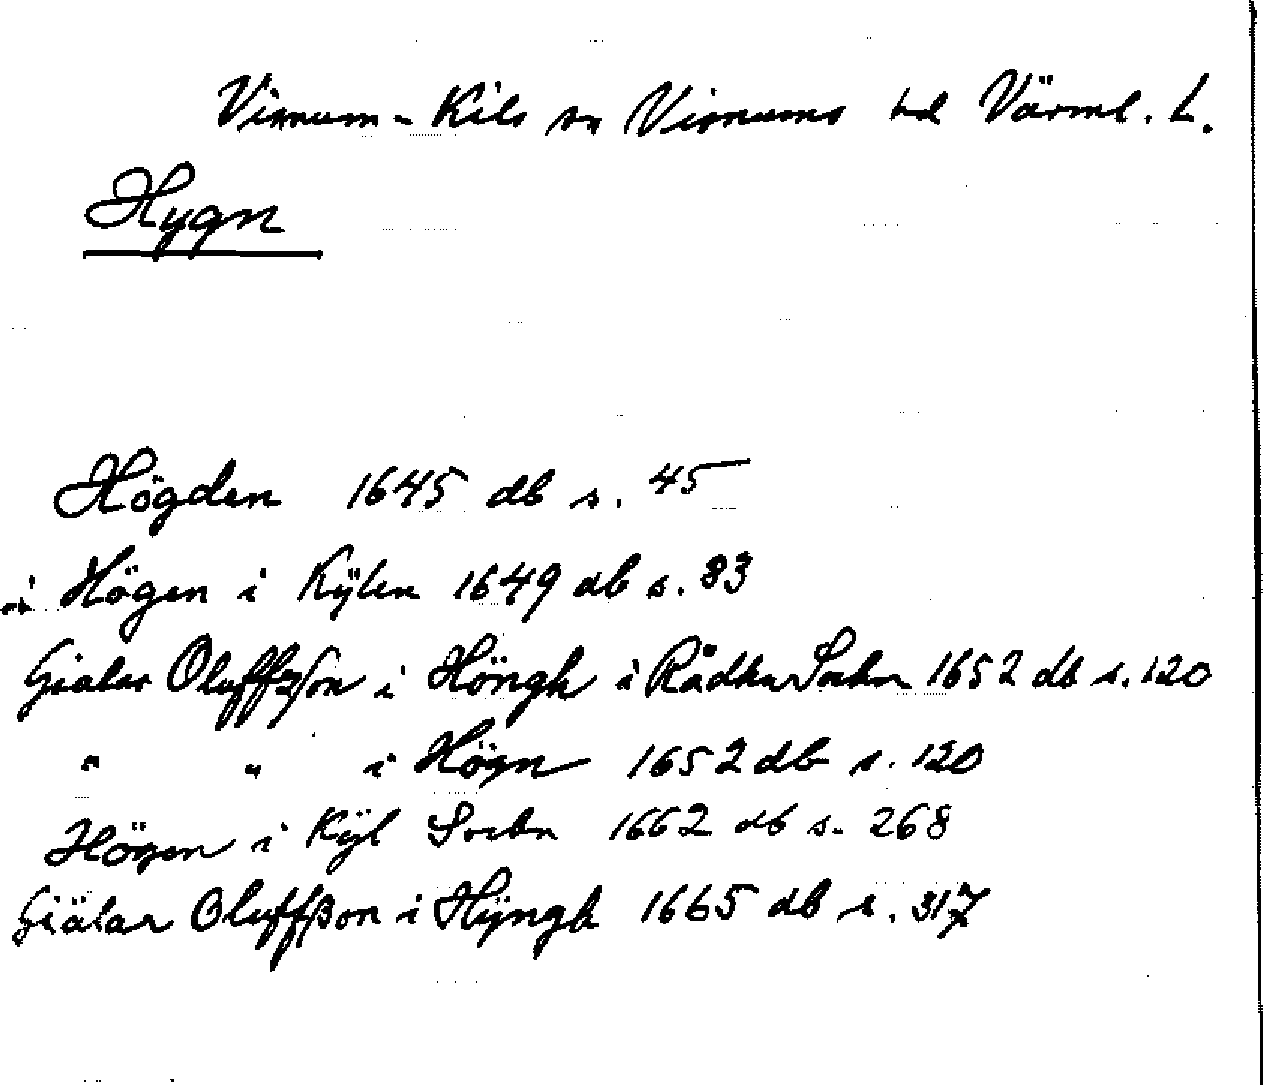 Visnum-Kils sn Visnums hd Värml. L.
Hygn
Högden 1645 db s. 45
i Högen i Kÿlen 1649 db s. 83
Gialar Oluffzson i Höngh i Rådku Sockn 1652 db s. 120
" " i Högn 1652 db s. 120
Högen i Kÿl Sockn 1662 db s. 268
Giälar Oluffßon i Hÿngh 1665 db s. 317